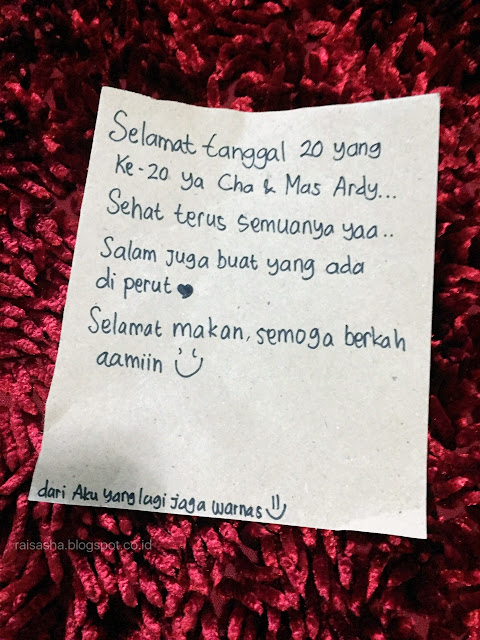 Selamat tanggal 20 yang
Ke-20 ya Cha & Mas Ardy...
Sehat terus semuanya yaa..
Salam juga buat yang ada
di perut
Selamat makan, semoga berkah
aamiin
dari Aku yang lagi jaga warnas
raisasha.blogspot.co.id